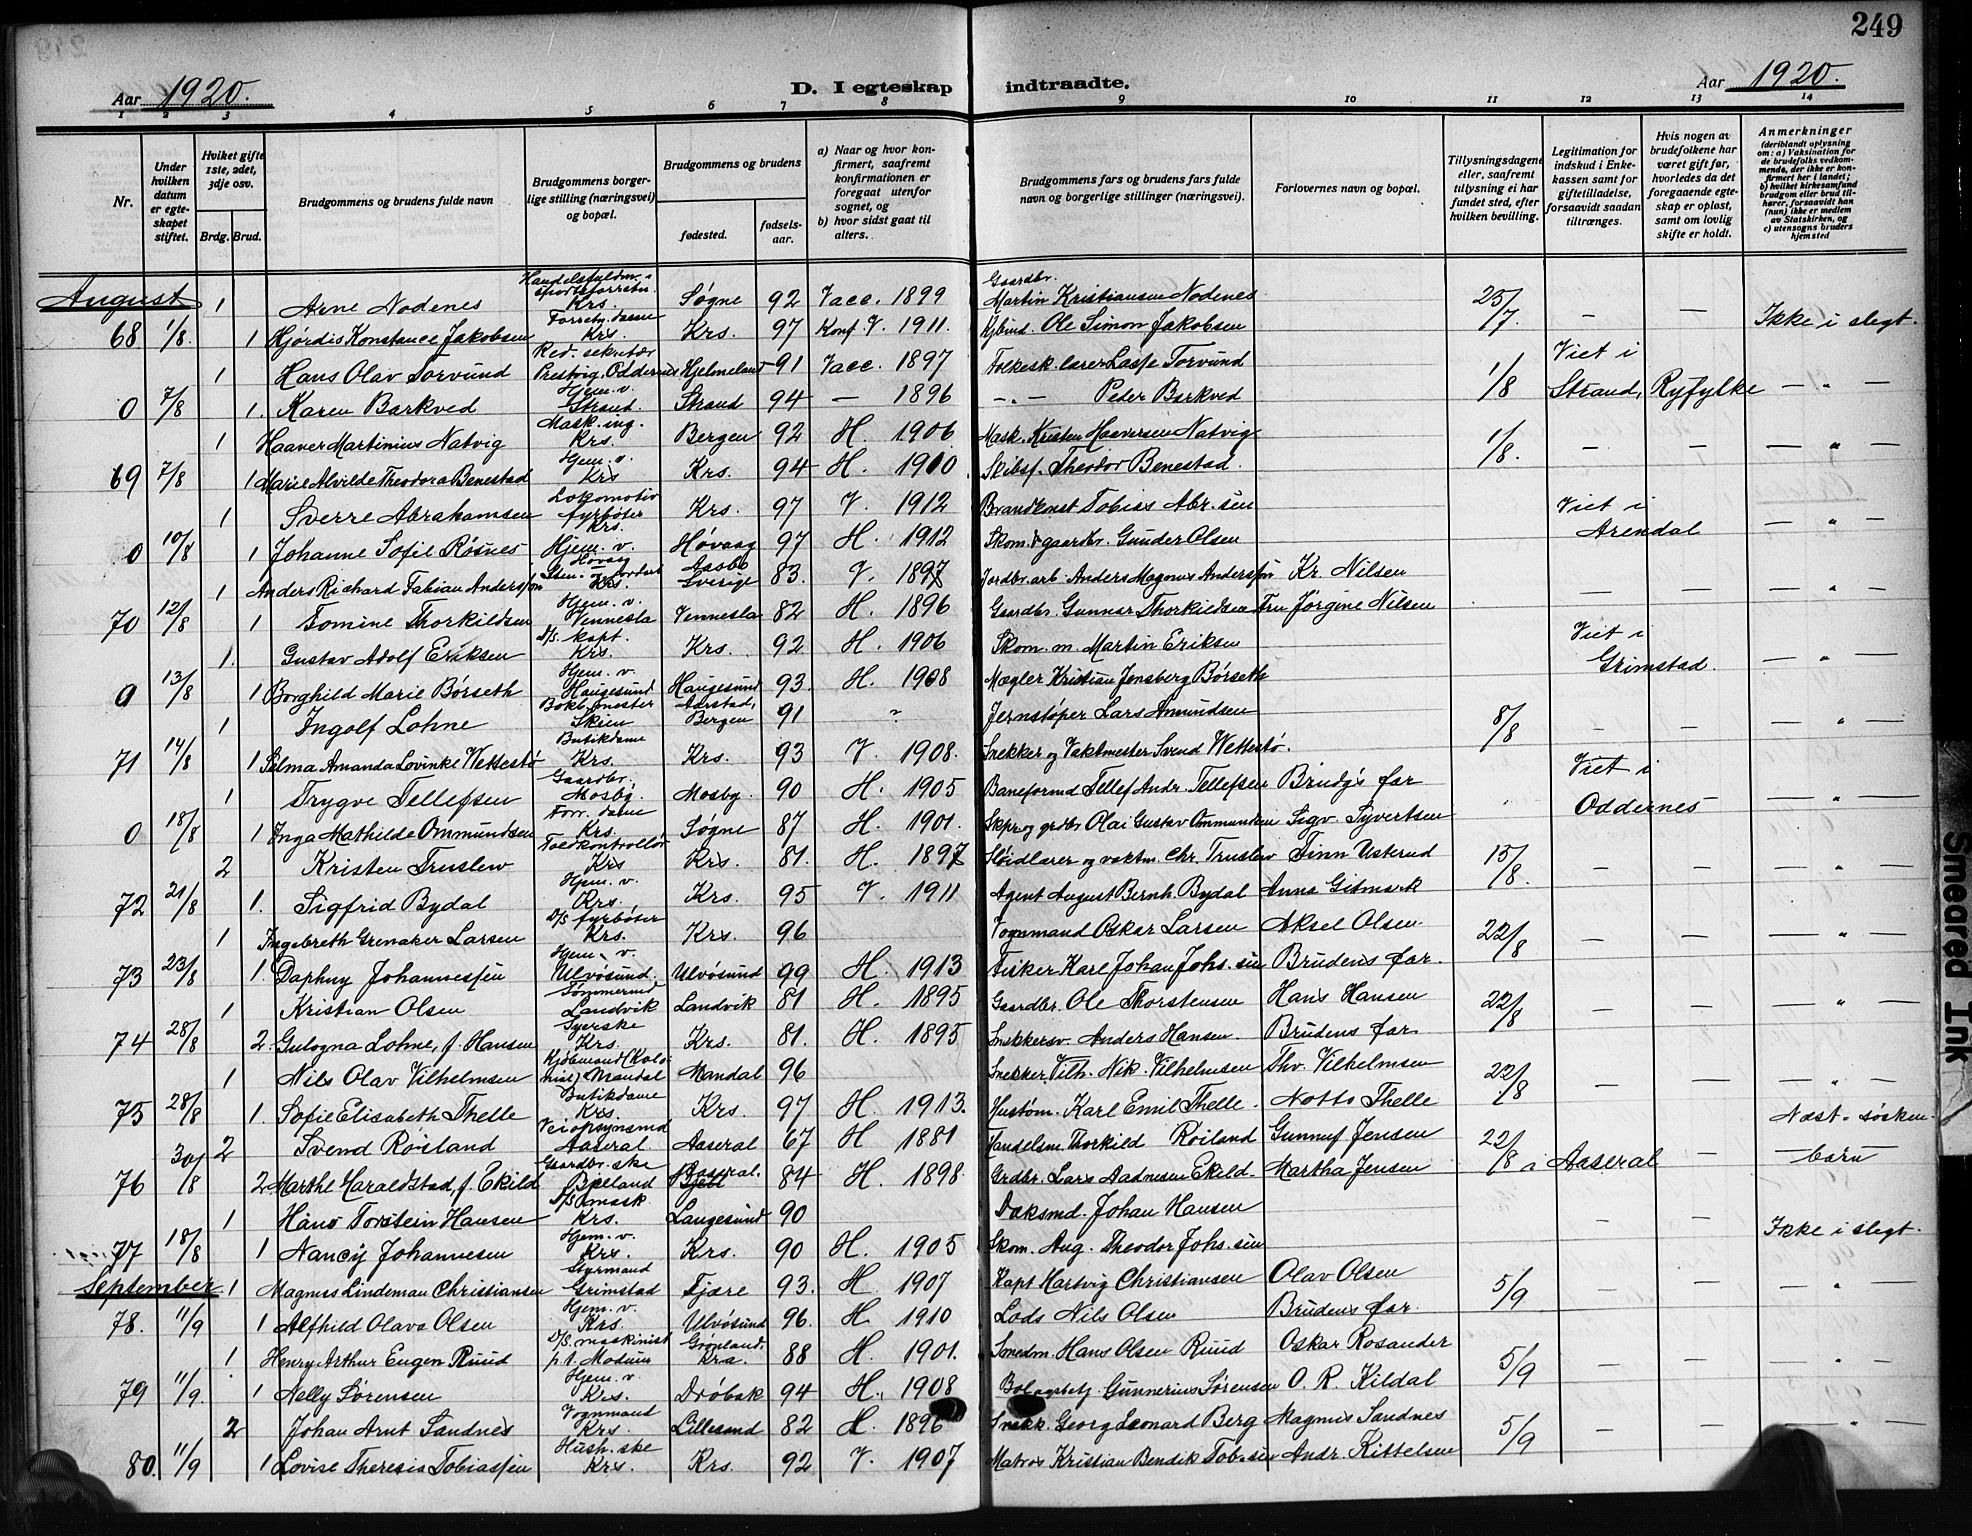 249
Aar 1920.
D. I egteskap indtraadte.
Aar 1920.
1 2 3 4 5 6 7 8 9 10 11 12 13 14
Nr.
Under hvilken datum er egteskapet stiftet.
Hvilket gifte 1ste, 2det, 3dje osv.
Brdg. Brud.
Brudgommens og brudens fulde navn
Brudgommens borgerlige stilling (næringsvei) og bopæl.
Brudgommens og brudens
fødested.
fødselsaar.
a) Naar og hvor konfirmert, saafremt konfirmationen er foregaat utenfor sognet, og
b) hvor sidst gaat til alters.
Brudgommens fars og brudens fars fulde navn og borgerlige stillinger (næringsvei).
Forlovernes navn og bopæl.
Tillysningsdagene eller, saafremt tillysning ei har fundet sted, efter hvilken bevilling.
Legitimation for indskud i Enkekassen samt for giftetilladelse, forsaavidt saadan tiltrænges.
Hvis nogen av brudefolkene har været gift før, hvorledes da det foregaaende egteskap er opløst, samt om lovlig skifte er holdt.
Anmerkninger (deriblandt oplysning om: a) Vaksination for de brudefolks vedkommende, der ikke er konfirmert her i landet; b) hvilket kirkesamfund brudgom eller brud tilhører, forsaavidt han (hun) ikke er medlem av Statskirken, og c) utensogns bruders hjemsted
August 1 Arne Nodenes Krs. Søgne 92 Vacc. 1899 Gaardbr. Martin Kristiansen Nodenes 25/7 — —
68 1/8. 1 Hjørdis Konstance Jakobsen Forretn. dame Krs. Krs. 97 Konf. V. 1911. Kjbmd. Ole Simon Jakobsen Ikke i slegt.
1 Hans Olav Torvund Red. sekretær Prestvig, Oddernes Hjelmeland 91 Vacc. 1897 Folkesk.lærer Lasse Torvund 1/8 Viet i
0 7/8 1. Karen Barkved Hjem. v. Strand. Strand 94 — 1896 —"— Peder Barkved Strand, Ryfylke — " —
1 Haaver Martinius Natvig Mask. ing. Krs. Bergen 92 H. 1906. Mask. Kristen Haaversen Natvig 1/8. — — "
69 7/8 1 Marie Alvilde Theodora Benestad Hjem. v. Krs Krs. 94 H. 1910 Skibsf. Theodor Benestad.
1 Sverre Abrahamsen Lokomotiv fyrbøter Krs. Krs. 97 V. 1912 Brandkonst Tobias Abr.sen Viet i
0 10/8 1 Johanne Sofie Rosnes Hjem. v. Høvaag Høvaag 97 H. 1912 Skom. & gaardbr. Gunder Olsen Arendal — " —
1 Anders Richard Fabian Andersson Krs. Aasbo Sverige 83. V. 1897 Jordbr.arb. Anders Magnus Andersson Kr. Nilsen — — — " —
70 12/8 1 Tomine Thorkildsen Hjem. v. Vennesla Vennesla 82 H. 1896 Gaardbr. Gunnar Thorkildsen Fru Jørgine Nilsen
1. Gustav Adolf Eriksen D/s. kapt. Krs. Krs. 92 H. 1906 Skom. m. Martin Eriksen Viet i
0 13/8 1 Borghild Marie Børseth Hjem. v. Haugesund Haugesund 93. H. 1908 Mægler Kristian Jensberg Børseth Grimstad. — " —
1 Ingolf Lohne Bokb. mester Skien Aarstad, Bergen 91 ? Jernstøper Lars Amundsen 8/8 — — — " —
71 14/8 1 Selma Amanda Lovinke Wettestø Butikdame Krs. Krs. 93 V. 1908. Snekker og Vaktmester Svend Wettestø.
1 Trygve Tellefsen Gaardbr. Mosby. Mosby. 90 H. 1905 Baneformd Tellef Andr. Tellefsen Brudg's far Viet i
0 18/8 1 Inga Mathilde Ommundsen Forr. dame Krs. Søgne 87 H. 1901. Skpr og grdbr Olai Gustav Ommundsen Sigv. Syvertsen Oddernes — " —
2 Kristen Truslew Toldkontrollør Krs Krs. 81. H. 1897 Sløidlærer og vaktm. Chr. Truslew Finn Usterud 15/8. — — — " —
72 21/8 1. Sigfrid Bydal Hjem. v. Krs. Krs. 95 V. 1911 Agent August Bernh. Bydal Anna Gitmark
1 Ingebreth Grenaker Larsen D/s fyrbøter Krs. Krs. 96 Vognmand Oskar Larsen Aksel Olsen 22/8 — — — " —
73 23/8 1. Daphny Johannessen Hjem. v. Ulvøsund. Ulvøsund 99 H. 1913 Fisker Karl Johan Johs.sen Brudens far.
1 Kristian Olsen Tømmermd Landvik Landvik 81 H. 1895 Gaardbr. Ole Thorstensen Hans Hansen 22/8 — — — " —
74 28/8 2. Gulogna Lohne, f. Hansen Syerske Krs. Krs. 81. H. 1895 Snekkersv. Anders Hansen. Brudens far.
1 Nils Olav Vilhelmsen Kjøbmand (Kolonial) Mandal Mandal 96 Snekker Vilh. Nik. Vilhelmsen Thv. Vilhelmsen 22/8 — — — " —
75 28/8 1. Sofie Elisabeth Thelle Butikdame Krs. Krs. 97 H. 1913. Hustøm. Karl Emil Thelle. Notto Thelle
2 Svend Røiland Veiopsynsmd Aaseral Aaseral 67 H 1881 Handelsm. Thorkild Røiland Gunnuf Jensen 22/8 Næst. søsken-
76 30/8 2 Marthe Haraldstad, f. Ekild Gaardbr.ske Bjelland Aaseral. 84 H. 1898. Grdbr. Lars Aadnesen Ekild. Martha Jensen i Aaseral — — barn —
1 Hans Torstein Hansen D/s mask. Krs. Langesund 90 Daksmd. Johan Hansen — —
77 18/8 1 Nancy Johannesen Hjem. v. Krs. Krs. 90 H. 1905 Skom. Aug. Theodor Johs.sen Ikke i slegt.
September 1 Magnus Lindeman Christiansen Styrmand Grimstad Fjære 93. H. 1907 Kapt Hartvig Christiansen Olav Olsen 5/9 — — — " —
78. 11/9 1 Alfhild Olava Olsen Hjem. v. Krs. Ulvøsund 96. H 1910 Lods Nils Olsen Brudens far.
1 Henry Arthur Eugen Ruud D/S. maskinist p.t. Modum Grønland, Kra. 88 H. 1901. Smedm. Hans Olsen Ruud Oskar Rosander 5/9 — — — " —
79 11/9. 1 Nelly Sørensen Hjem. v. Krs. Drøbak 94 H. 1908 Gunnerius Sørensen O. R. Kildal
2 Johan Arnt Sandnes Vognmand Krs. Lillesand 82 H. 1896 Snekk. Georg Leonard Berg Magnus Sandnes 5/9 — — — " —
80. 11/9 1 Lovise Theresia Tobiassen Hush.ske Krs. Krs. 92 V. 1907 Matros Kristian Bendik Tob.sen Andr. Kittelsen
Smeared Ink